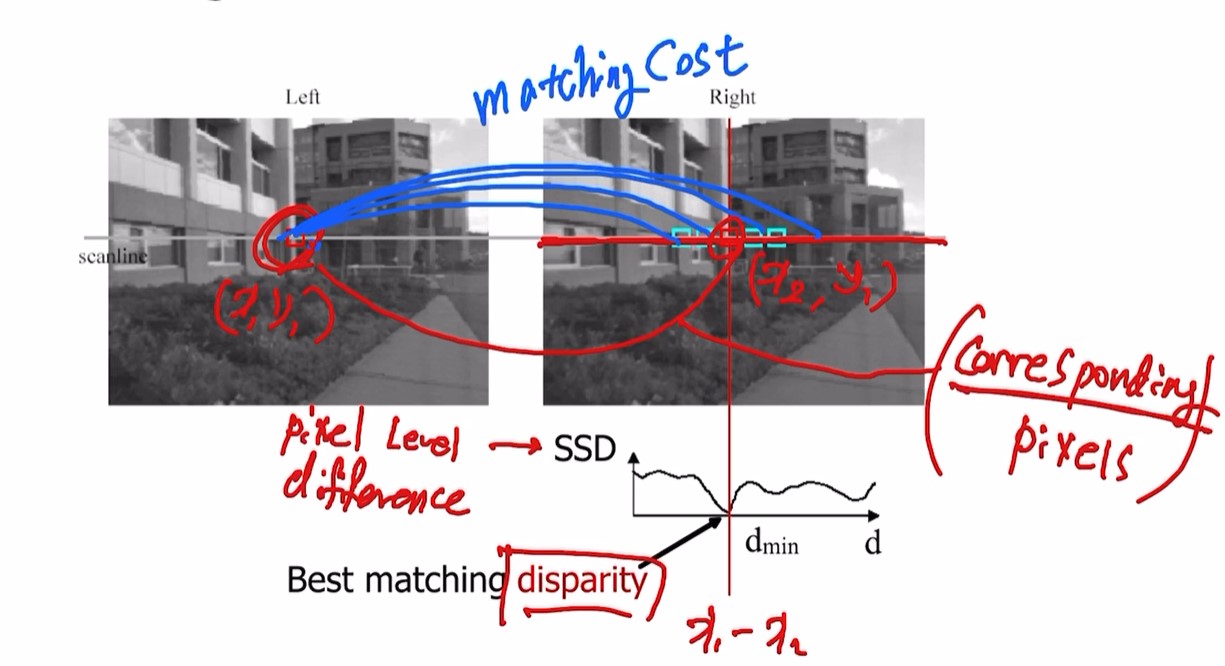 matching Cost
Left
Right
scanline
(x₁, y₁)
(x₂, y₁)
(Corresponding
pixels)
pixel Level
difference
→ SSD
d_min
d
Best matching disparity
x₁ - x₂